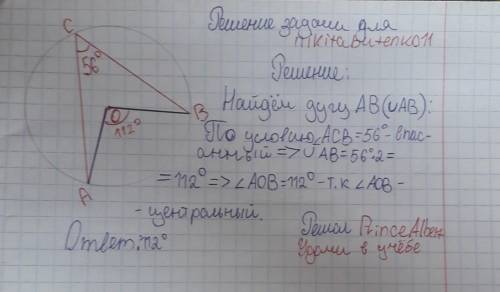 Решение задачи для
nikitaButenko11
Решение:
Найдём дугу AB(∪AB):
По условию ∠ACB=56°- впис-
анный => ∪AB=56°·2=
=112° => ∠AOB=112°-т.к ∠AOB -
- центральный.
Ответ: 112°
Решал PrinceAlbert
Удачи в учёбе
C
56°
O
112°
B
A